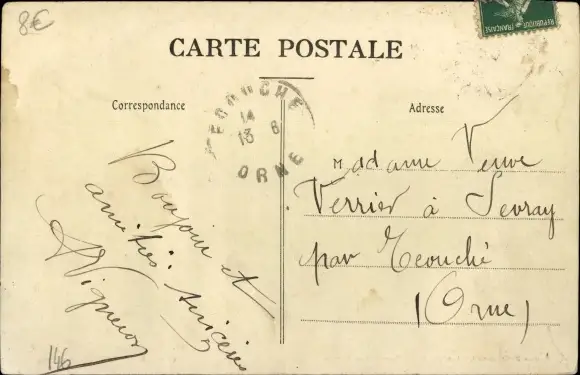 8€
REPUBLIQUE FRANÇAISE
CARTE POSTALE
Correspondance
Adresse
ECOUCHE
14
13 8
ORNE
Bonjour et
amitiés sincères
Vigneron
146
Madame Veuve
Verrier à Sevray
par Ecouché
(Orne)